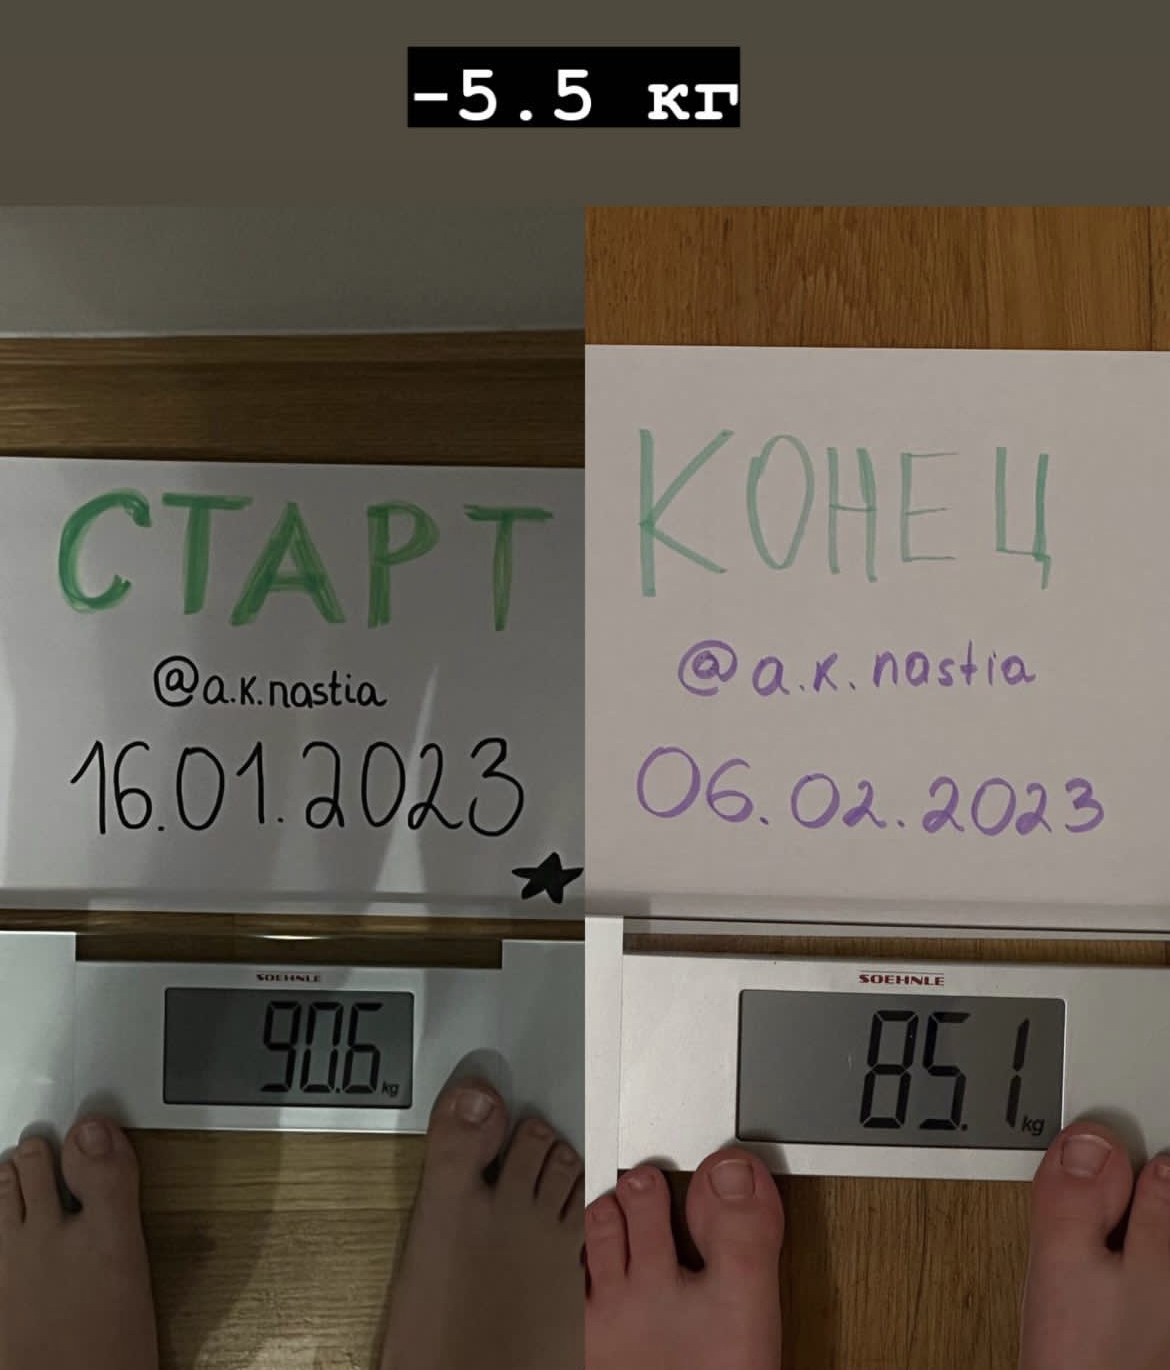 -5.5 кг
СТАРТ
@a.k.nastia
16.01.2023
SOEHNLE
90.6 kg
КОНЕЦ
@a.k.nastia
06.02.2023
SOEHNLE
85.1 kg